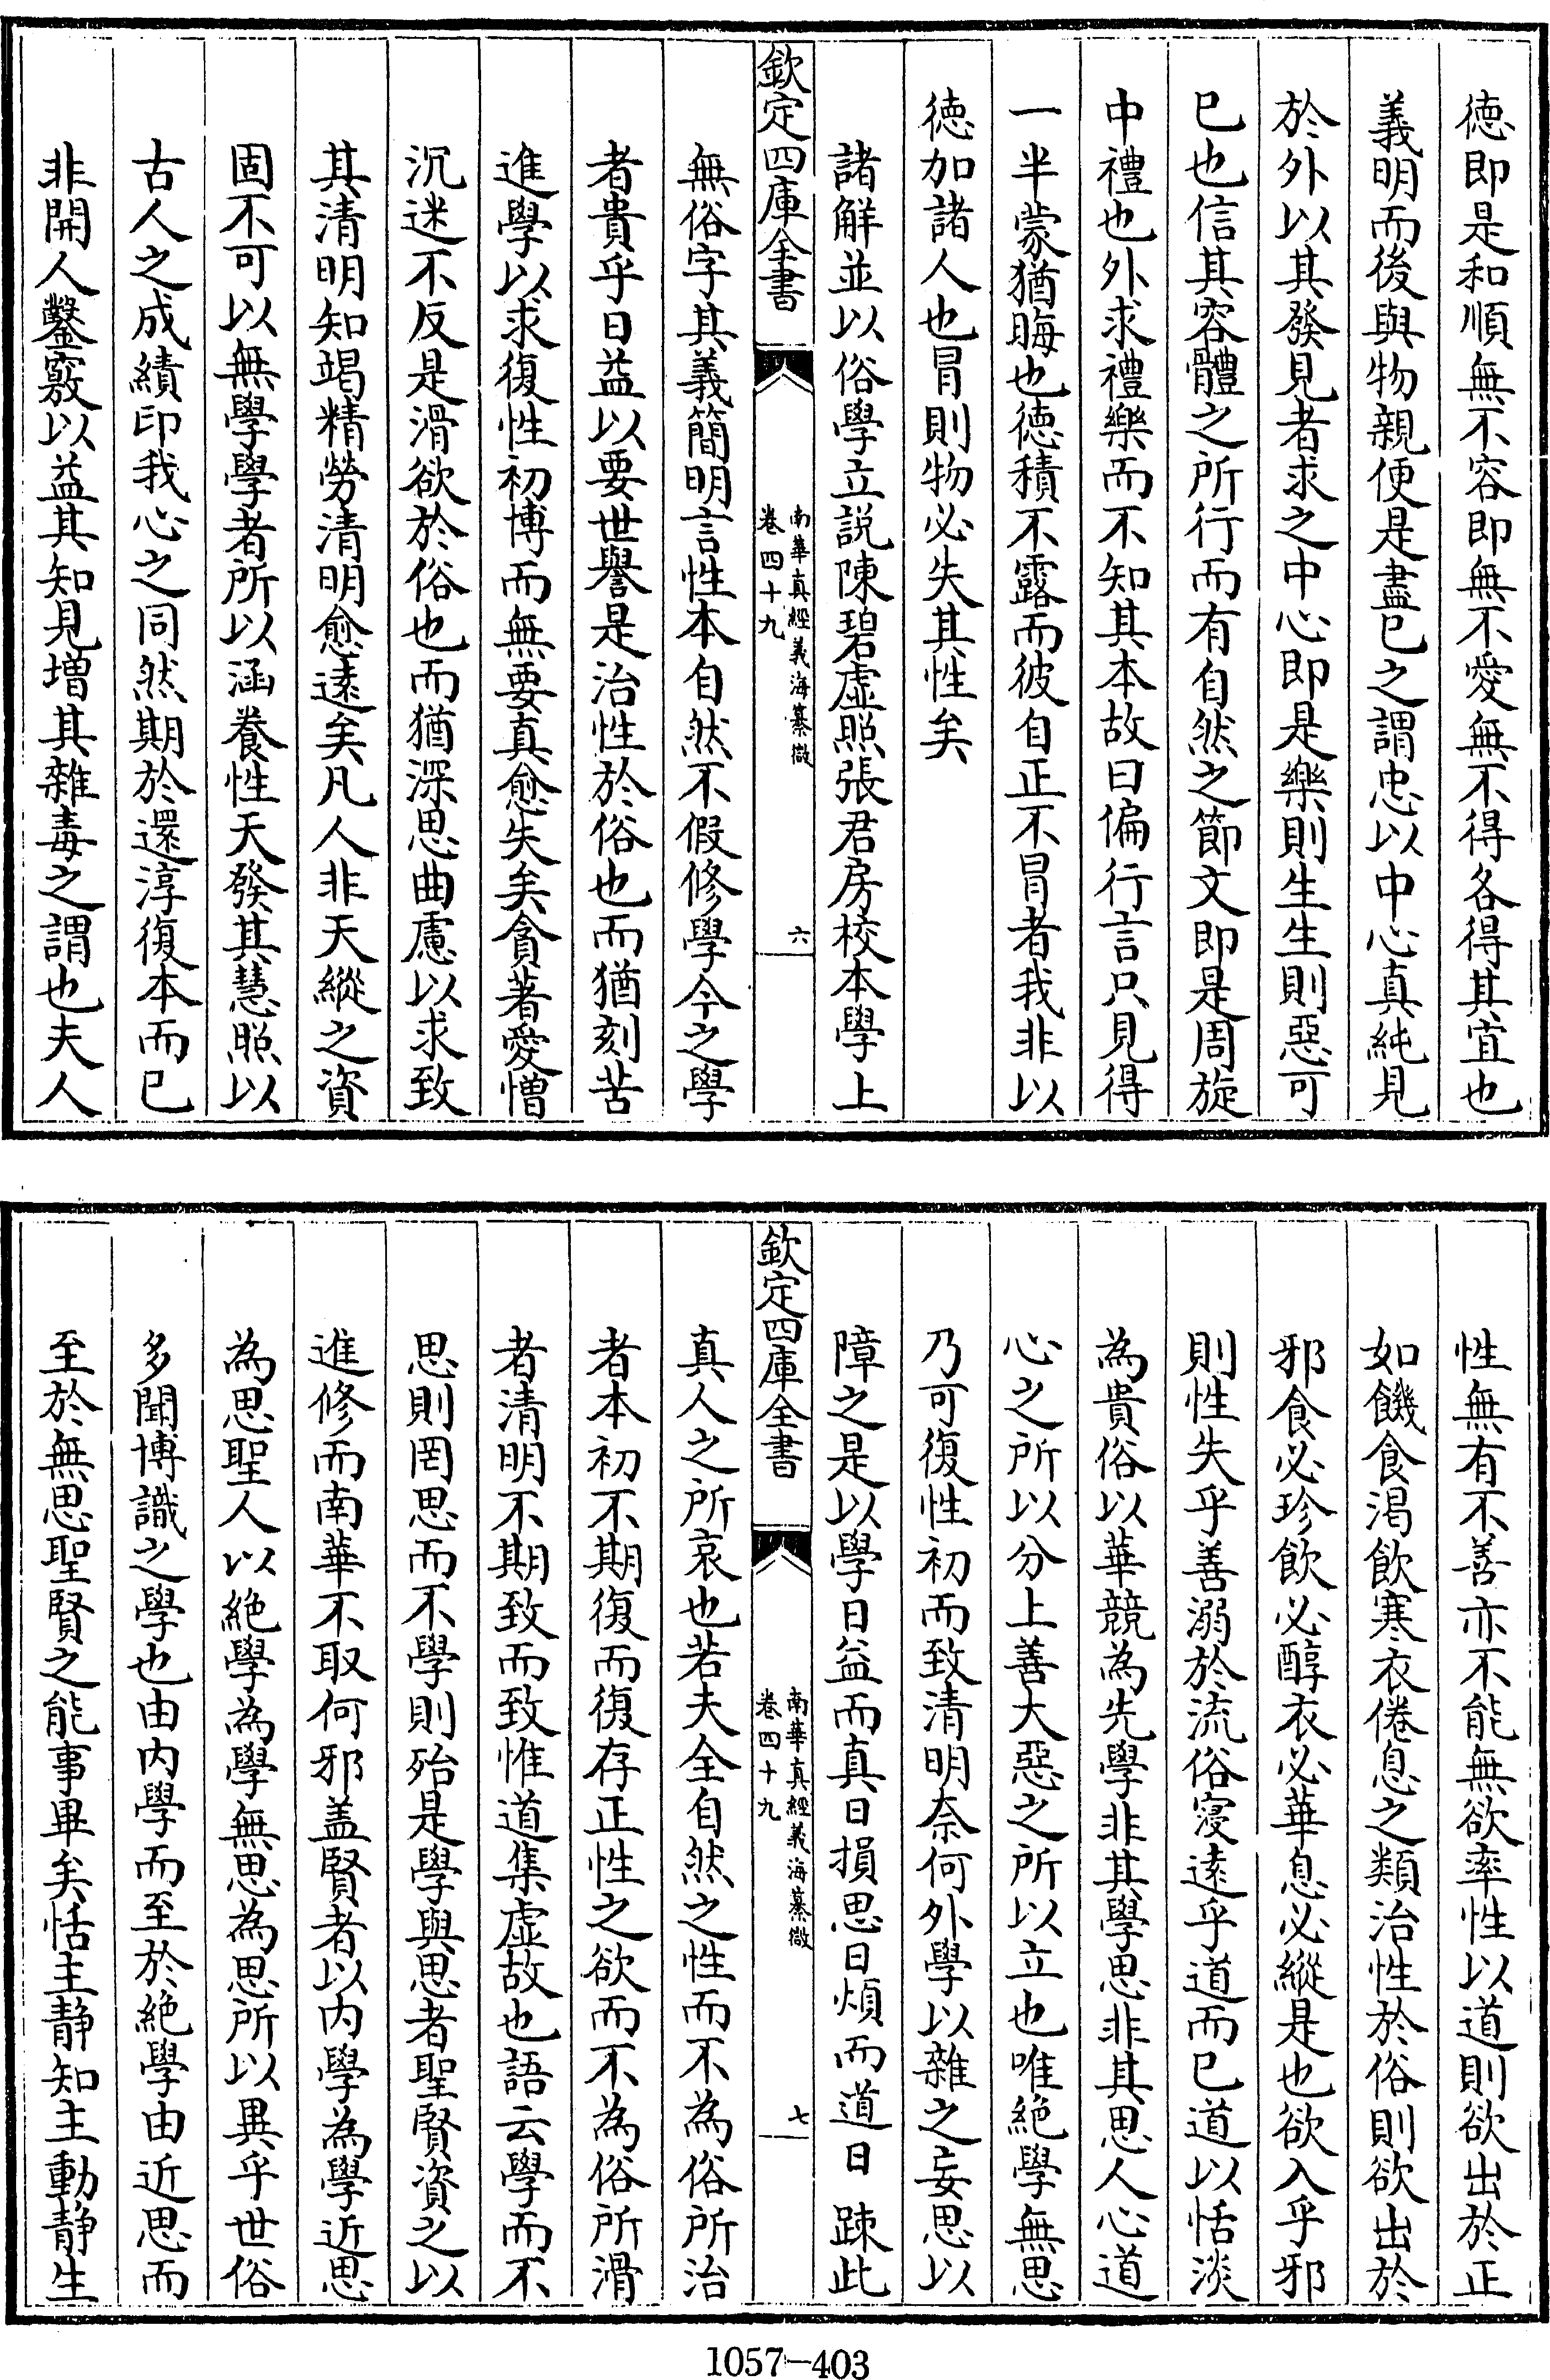 德即是和順無不容即無不愛無不得各得其宜也
義明而後與物親便是盡已之謂忠以中心真純見
於外以其發見者求之中心即是樂則生生則惡可
已也信其容體之所行而有自然之節文即是周旋
中禮也外求禮樂而不知其本故曰偏行言只見得
一半蒙猶晦也德積不露而彼自正不冒者我非以
德加諸人也冒則物必失其性矣
諸解並以俗學立說陳碧虛照張君房校本學上
欽定四庫全書
南華真經義海纂微
卷四十九
六
無俗字其義簡明言性本自然不假修學今之學
者貴乎日益以要世譽是治性於俗也而猶刻苦
進學以求復性初博而無要真愈失矣貪著愛憎
沉迷不反是滑欲於俗也而猶深思曲慮以求致
其清明知竭精勞清明愈遠矣凡人非天縱之資
固不可以無學學者所以涵養性天發其慧照以
古人之成績印我心之同然期於還淳復本而已
非開人鑿竅以益其知見增其雜毒之謂也夫人
性無有不善亦不能無欲率性以道則欲出於正
如饑食渴飲寒衣倦息之類治性於俗則欲出於
邪食必珍飲必醇衣必華息必縱是也欲入乎邪
則性失乎善溺於流俗寖遠乎道而已道以恬淡
為貴俗以華競為先學非其學思非其思人心道
心之所以分上善大惡之所以立也唯絶學無思
乃可復性初而致清明奈何外學以雜之妄思以
障之是以學日益而真日損思日煩而道日踈此
欽定四庫全書
南華真經義海纂微
卷四十九
七
真人之所哀也若夫全自然之性而不為俗所治
者本初不期復而復存正性之欲而不為俗所滑
者清明不期致而致惟道集虛故也語云學而不
思則罔思而不學則殆是學與思者聖賢資之以
進修而南華不取何邪盖賢者以内學為學近思
為思聖人以絶學為學無思為思所以異乎世俗
多聞博識之學也由内學而至於絶學由近思而
至於無思聖賢之能事畢矣恬主静知主動静生
1057—403